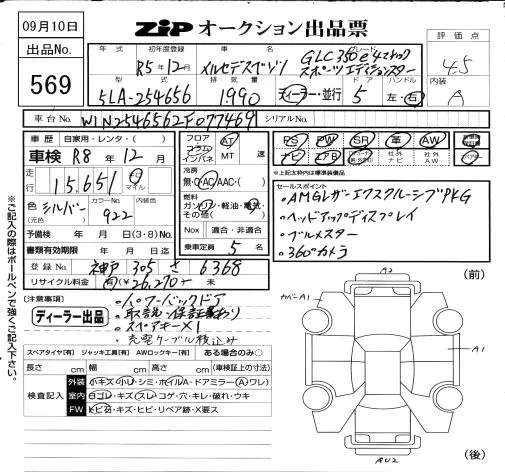 09月10日
ZIP オークション出品票
出品No.
569
年式
初年度登録
R5年12月
車名
メルセデスベンツ
グレード
GLC350e4マチック
スポーツエディションスター
評価点
4.5
内装
A
型式
5LA-254656
排気量
1990
ディーラー・並行
ドア
5
ハンドル
左・右
車台No.
W1N2546562F077469
シリアルNo.
車歴 自家用・レンタ・( )
車検 R8年12月
走行
15,651
km
マイル
色
(元色)
シルバー
カラーNo.
922
予備検 年 月 日(3・8)No.
書類有効期限 年 月 日迄
登録No. 神戸 305 さ 6368
リサイクル料金 (有)(¥26,270)・未
フロア
コラム
インパネ
AT
MT
速
冷房
無・AC(AAC・( )
燃料
ガソリン・軽油・電気・
その他( )
Nox 適合・非適合
乗車定員 5名
PS PW SR 革 AW
ナビ エアB
社外
ナビ
社外
AW
*上記太枠内は標準装備品
セールスポイント
・AMGレザーエクスクルーシブPKG
・ヘッドアップディスプレイ
・ブルメスター
・360°カメラ
(注意事項)
ディーラー出品
・パワーバックドア
・取説・保証書あり
・スペアキー×1
・充電ケーブル積込み
スペアタイヤ[有] ジャッキ工具[有] AWロックキー[有] ある場合のみ○
長さ cm 幅 cm 高さ cm (車検証上の寸法)
検査記入
外装 小キズ・小U・シミ・ホイルA・ドアミラー(Aワレ)
室内 白コレ・キズ・スレ・コゲ・穴・キレ・破れ・ウキ
FW トビ石・キズ・ヒビ・リペア跡・X要ス
※ご記入の際はボールペンで強くご記入下さい。
(前)
A2
カバーA1
A1
AU2
(後)